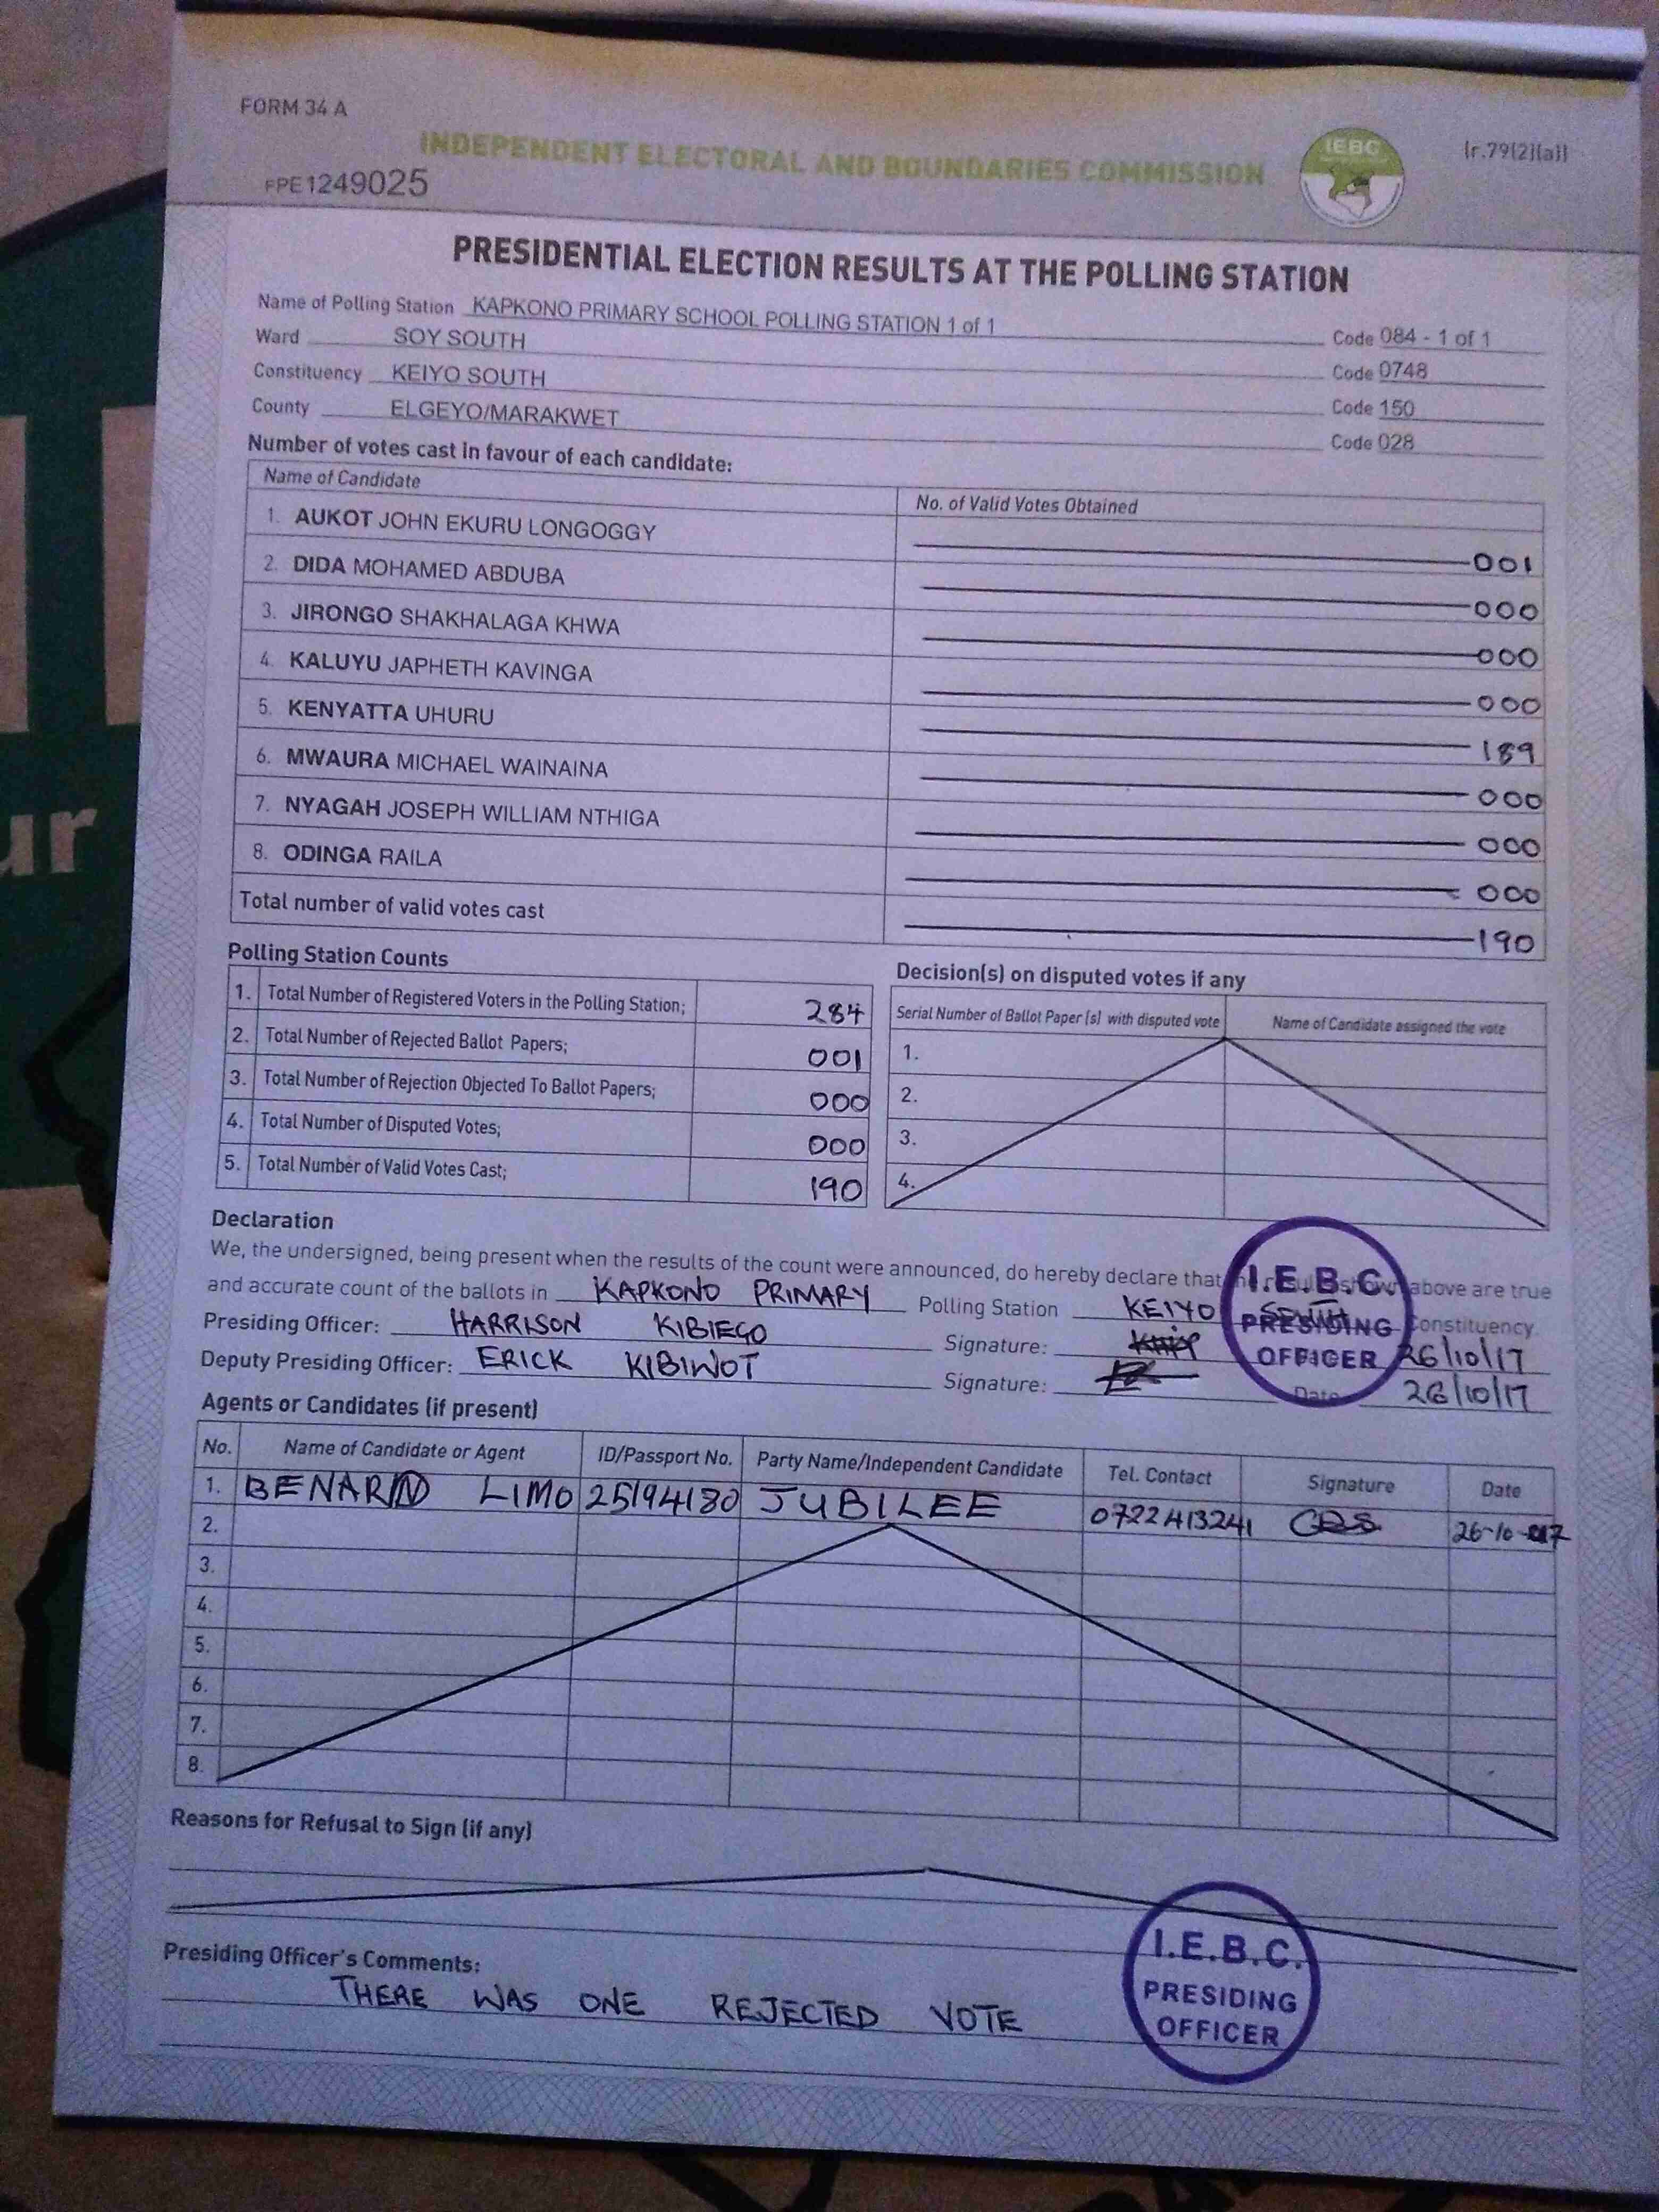 FORM 34 A
INDEPENDENT ELECTORAL AND BOUNDARIES COMMISSION
IEBC
(r.79(2)(a))
FPE1249025
PRESIDENTIAL ELECTION RESULTS AT THE POLLING STATION
Name of Polling Station KAPKONO PRIMARY SCHOOL POLLING STATION 1 of 1 Code 084 - 1 of 1
Ward SOY SOUTH Code 0748
Constituency KEIYO SOUTH Code 150
County ELGEYO/MARAKWET Code 028
Number of votes cast in favour of each candidate:
Name of Candidate No. of Valid Votes Obtained
1. AUKOT JOHN EKURU LONGOGGY 001
2. DIDA MOHAMED ABDUBA 000
3. JIRONGO SHAKHALAGA KHWA 000
4. KALUYU JAPHETH KAVINGA 000
5. KENYATTA UHURU 189
6. MWAURA MICHAEL WAINAINA 000
7. NYAGAH JOSEPH WILLIAM NTHIGA 000
8. ODINGA RAILA 000
Total number of valid votes cast 190
Polling Station Counts
1. Total Number of Registered Voters in the Polling Station; 284
2. Total Number of Rejected Ballot Papers; 001
3. Total Number of Rejection Objected To Ballot Papers; 000
4. Total Number of Disputed Votes; 000
5. Total Number of Valid Votes Cast; 190
Decision(s) on disputed votes if any
Serial Number of Ballot Paper (s) with disputed vote Name of Candidate assigned the vote
1.
2.
3.
4.
Declaration
We, the undersigned, being present when the results of the count were announced, do hereby declare that the results shown above are true
and accurate count of the ballots in KAPKONO PRIMARY Polling Station KEIYO SOUTH Constituency
Presiding Officer: HARRISON KIBIEGO Signature: 26/10/17
Deputy Presiding Officer: ERICK KIBIWOT Signature: Date 26/10/17
I.E.B.C
PRESIDING
OFFICER
Agents or Candidates (if present)
No. Name of Candidate or Agent ID/Passport No. Party Name/Independent Candidate Tel. Contact Signature Date
1. BENARD LIMO 25194180 JUBILEE 0722413241 26-10-017
2.
3.
4.
5.
6.
7.
8.
Reasons for Refusal to Sign (if any)
Presiding Officer's Comments:
THERE WAS ONE REJECTED VOTE
I.E.B.C.
PRESIDING
OFFICER
ur